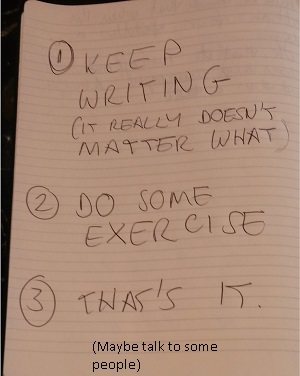 ① KEEP
WRITING
(IT REALLY DOESN'T
MATTER WHAT)
② DO SOME
EXERCISE
③ THAT'S IT.
(Maybe talk to some
people)